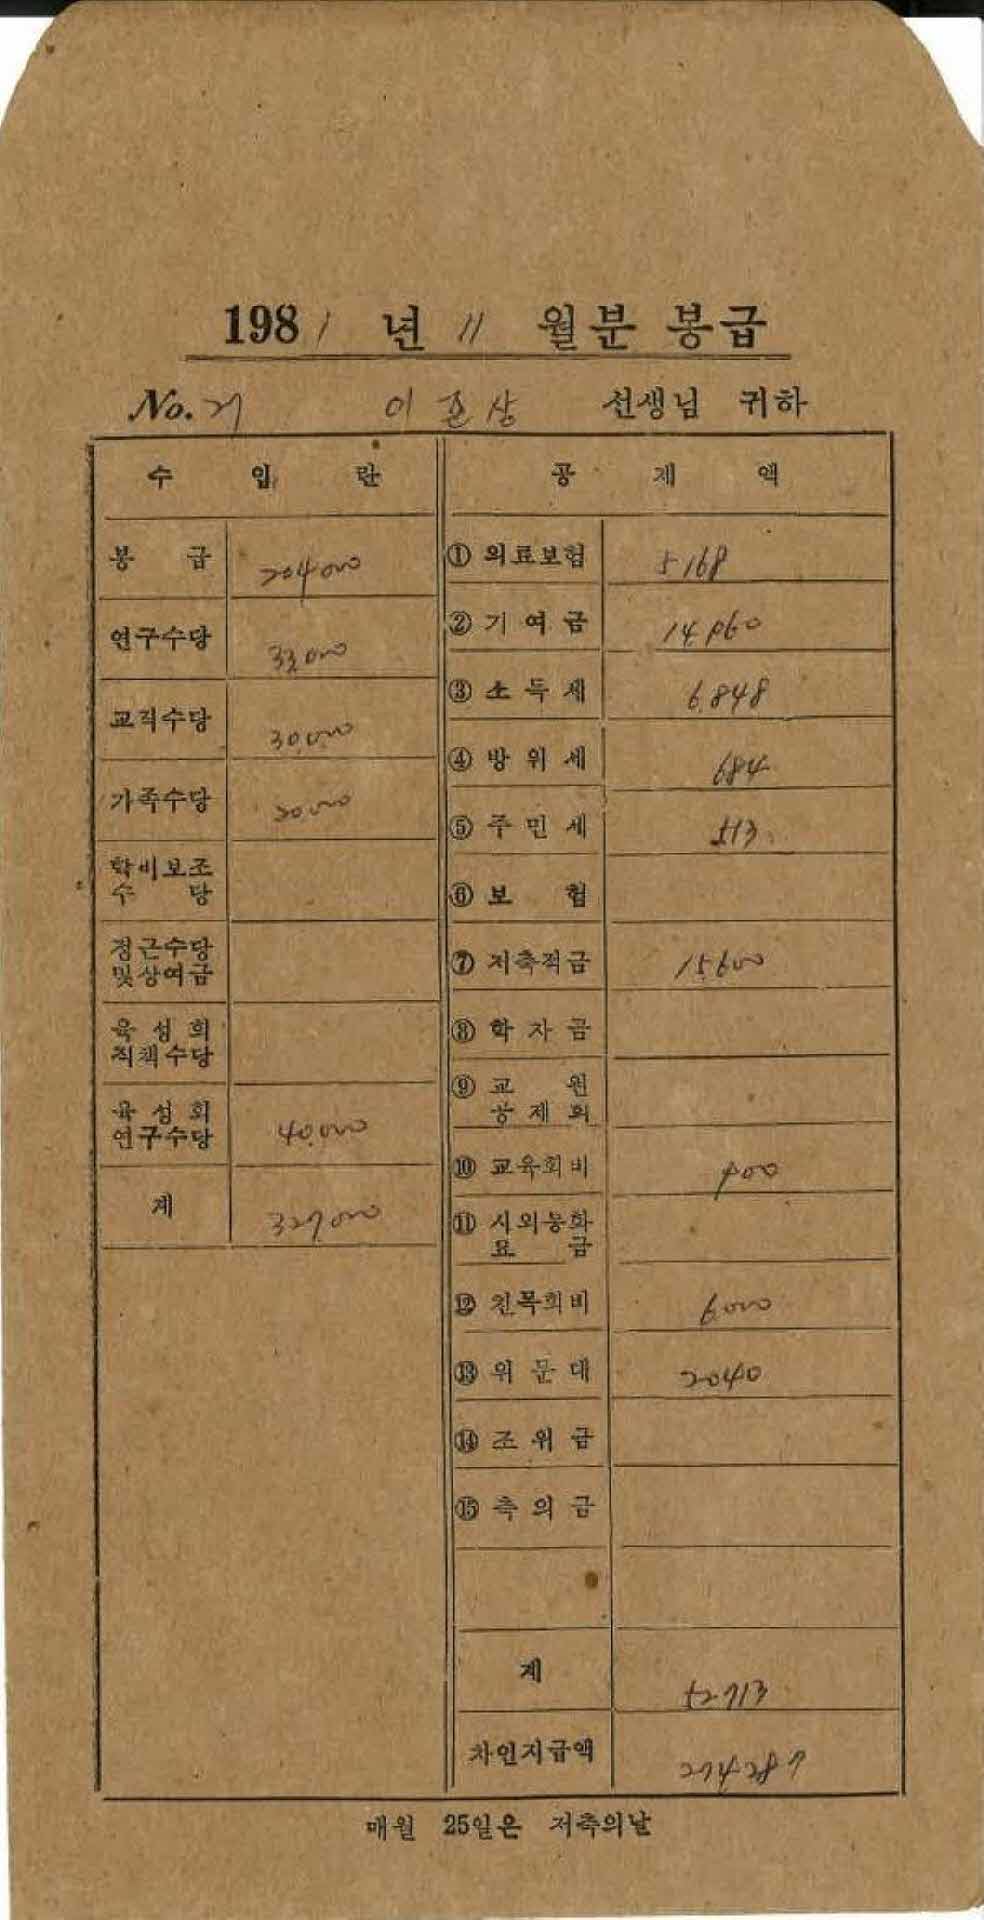 1981 년 11 월분 봉급
No. 27 이 준 상 선생님 귀하
수 입 란 공 제 액
봉 급 204000
연구수당 33,000
교직수당 30000
가족수당 20000
학비보조
수 당
정근수당
및상여금
육 성 회
직책수당
육 성 회
연구수당 40,000
계 327000
① 의료보험 5168
② 기 여 금 14.960
③ 소 득 세 6.848
④ 방 위 세 684
⑤ 주 민 세 513
⑥ 보 험
⑦ 저축적금 15.600
⑧ 학 자 금
⑨ 교 원
공 제 회
⑩ 교육회비 500
⑪ 시외통화
요 금
⑫ 친목회비 6.000
⑬ 위 문 대 2040
⑭ 조 위 금
⑮ 축 의 금
계 52713
차인지급액 274287
매월 25일은 저축의날